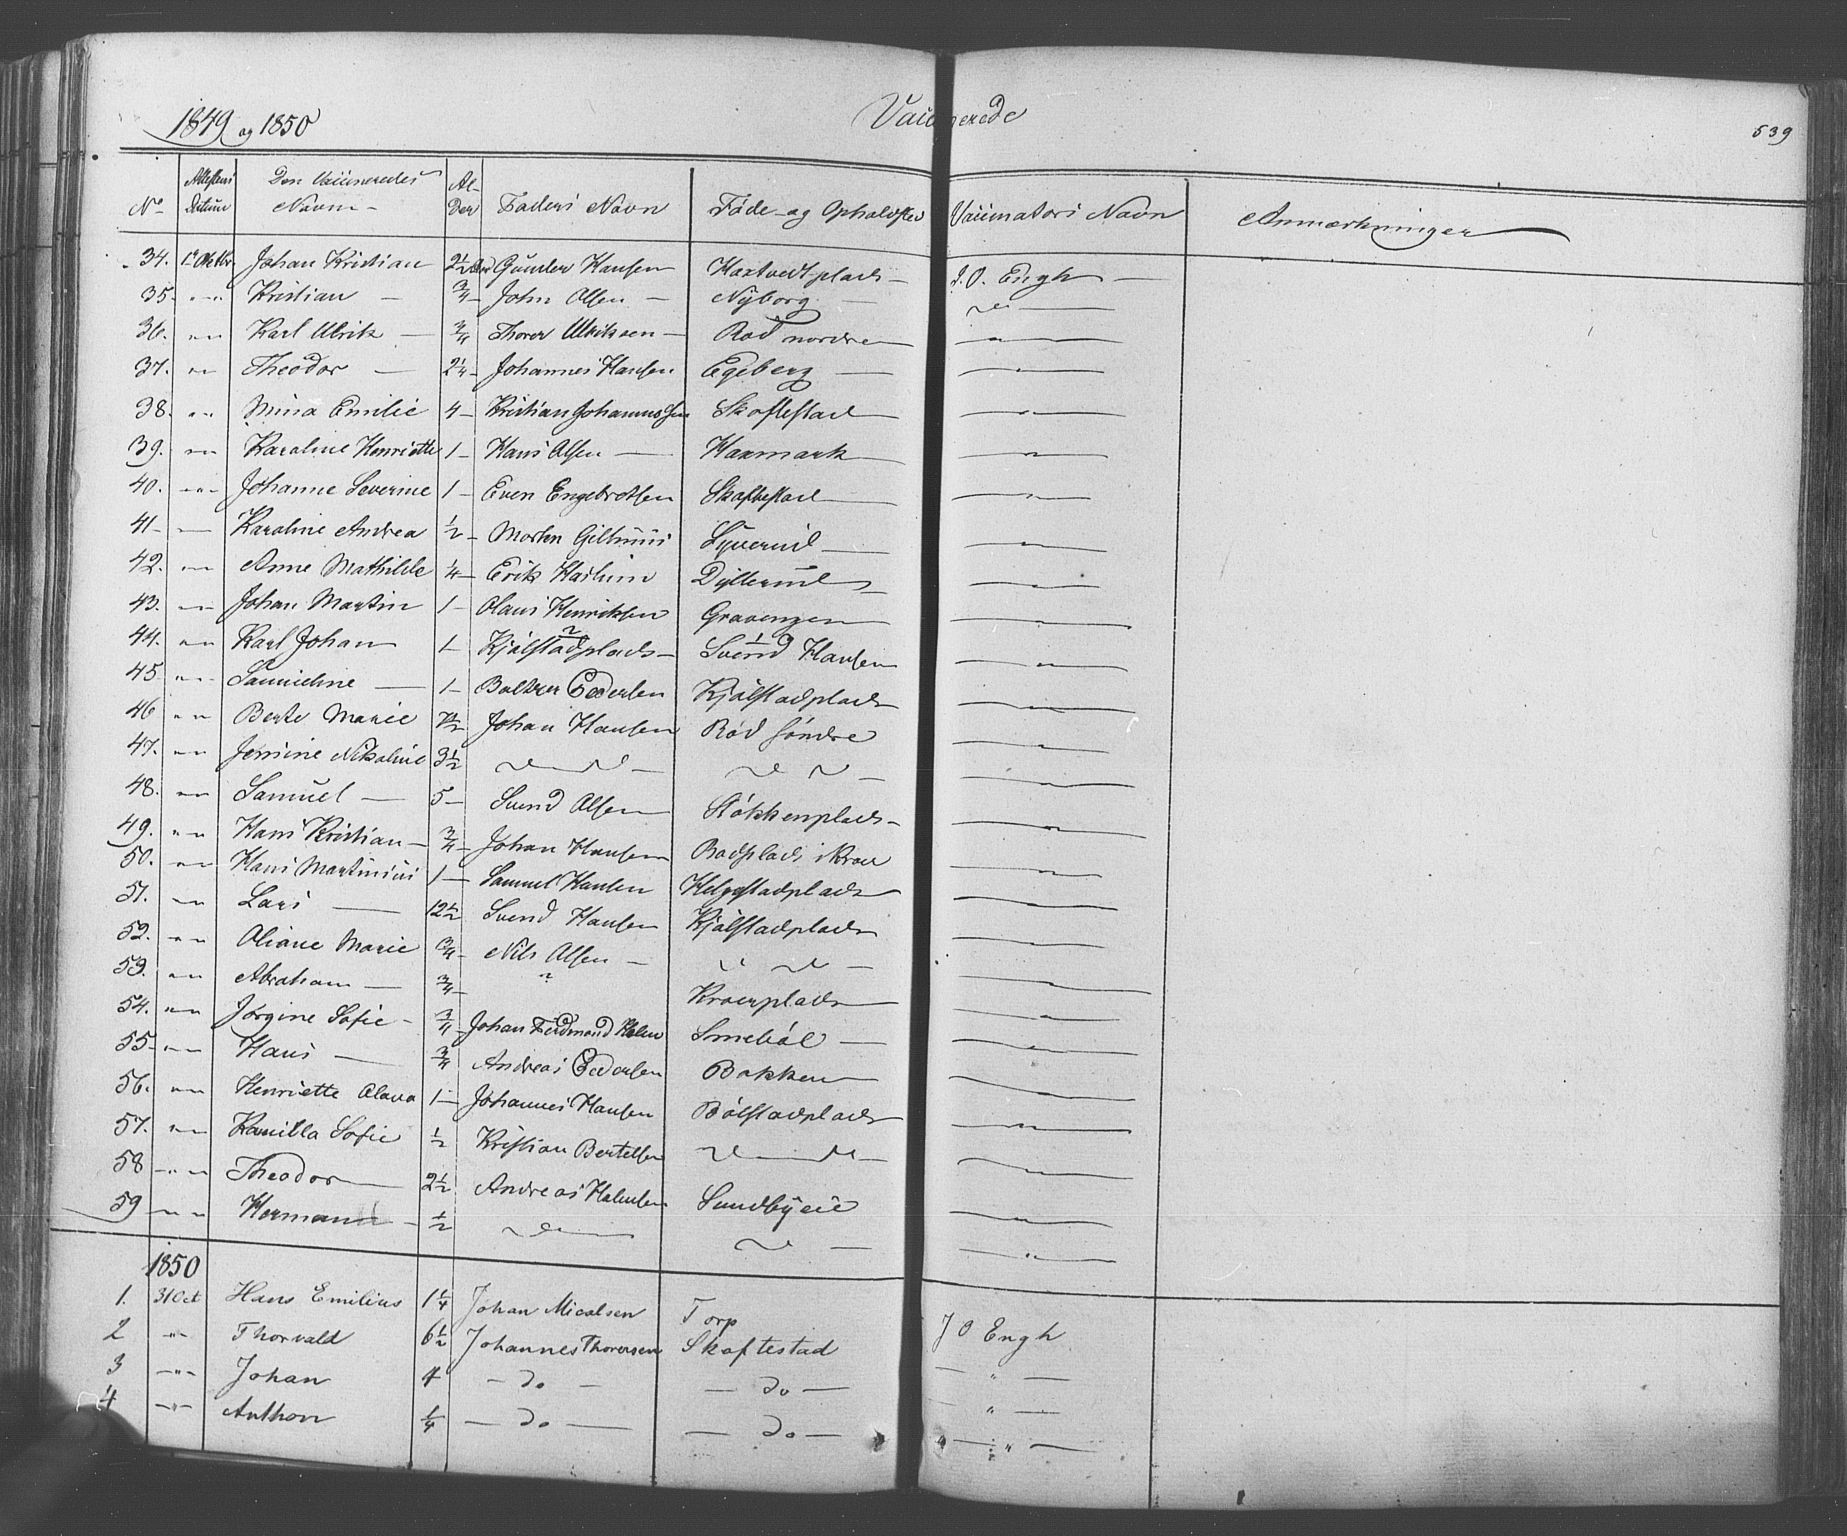 1849 og 1850 Vaccinerede 539
No Attestens Datum Den Vaccineredes Navn Alder Faders Navn Føde- og Opholdsted Vaccinators Navn Anmærkninger
34. 1ste Oktbr. Johan Kristian 2½ Aar Gunder Hansen Haxtvedtplads J. O. Engh
35. " Kristian ¾ John Olsen Nyborg do
36. " Karl Ulrik ¾ Thorer Ulriksen Rød nordre "
37. " Theodor 2¼ Johannes Hansen Egeberg "
38. " Mina Emilie 4 Kristian Johannessen Skoftestad "
39. " Karoline Henriette 1 Hans Olsen Haxmark "
40. " Johanne Severine 1 Even Engebretsen Skoftestad "
41 " Karoline Andrea ½ Morten "
42. " Anne Mathilde ¼ Erik Dyllerud "
43. " Johan Martin 1 Olaus Henriksen Gravengen "
44. " Karl Johan 1 Kjølstadplads 2 Svend Hansen 1 "
45 " 1 Boltzer Pedersen Kjølstadplads "
46 " Berte Marie 7½ Johan Hansen Rød søndre "
47. " Jensine Nikoline 3½ do do "
48. " Samuel 5 Svend Olsen Støkkenplads "
49. " Hans Kristian ¾ Johan Hansen Rødsplads i Kroer "
50. " Hans Martinius 1 Samuel Hansen Kelgestadplads "
51. " Lars 12½ Svend Hansen Kjølstadplads "
52. " Oliane Marie ¾ Nils Olsen do "
53. " Abraham ¾ " Kroerplads "
54. " Jørgine Sofie ¾ Johan Ferdinand Holm Smebøl "
55 " Hans ¾ Andreas Pedersen Bakken "
56. " Henriette Olava 1 Johannes Hansen Bølstadplads "
57. " Kamilla Sofie ½ Kristian Bertelsen do "
58 " Theodor 2½ Andreas Halvorsen Sundbyeie "
59 " Hermann ½ do do "
1850
1. 31 Oct Hans Emilius 1¼ Johan Micalsen Torp J O Engh
2 " Thorvald 6½ Johannes Thorersen Skoftestad "
3 " Johan 4 do do "
4 " Anthon ¼ do do "